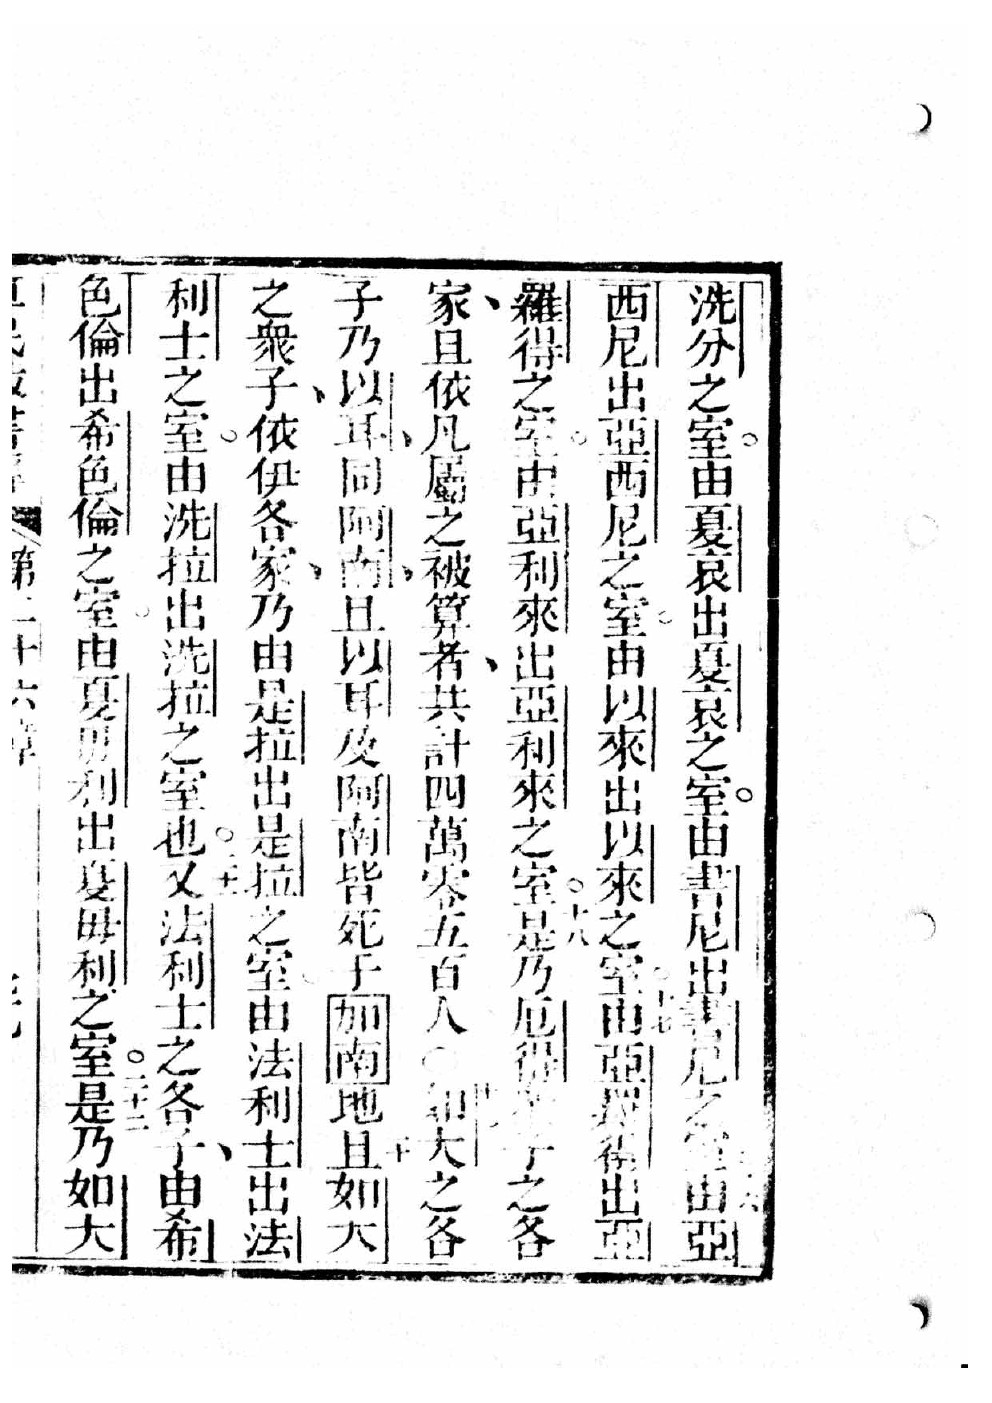 洗分之室。由夏哀出夏哀之室。由書尼出書尼之室由亞
西尼出亞西尼之室。由以來出以來之室。十七由亞羅得出亞
羅得之室。由亞利來出亞利來之室。十八是乃厄得子之各
家、且依凡屬之被算者、共計四萬零五百人○如大之各
子乃以耳、同阿南、且以耳及阿南皆死于加南地且如大
之衆子、依伊各家、乃由是拉出是拉之室。由法利士出法
利士之室。由洗拉出洗拉之室也。二十一又法利士之各子、由希
色倫出希色倫之室。由夏毋利出夏毋利之室。二十二是乃如大
第二十六章